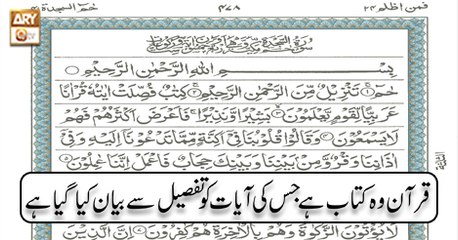 ARY
Qtv
فمن اظلم ٢٤
٤٧٨
حٰمٓ السجدة
بِسْمِ اللّٰهِ الرَّحْمٰنِ الرَّحِيْمِ
حٰمٓ ۝١ تَنْزِيْلٌ مِّنَ الرَّحْمٰنِ الرَّحِيْمِ ۝٢ كِتٰبٌ فُصِّلَتْ اٰيٰتُهٗ قُرْاٰنًا
عَرَبِيًّا لِّقَوْمٍ يَّعْلَمُوْنَ ۝٣ بَشِيْرًا وَّنَذِيْرًا ۚ فَاَعْرَضَ اَكْثَرُهُمْ فَهُمْ
لَا يَسْمَعُوْنَ ۝٤ وَقَالُوْا قُلُوْبُنَا فِيْٓ اَكِنَّةٍ مِّمَّا تَدْعُوْنَآ اِلَيْهِ وَفِيْٓ
اٰذَانِنَا وَقْرٌ وَّمِنْۢ بَيْنِنَا وَبَيْنِكَ حِجَابٌ فَاعْمَلْ اِنَّنَا عٰمِلُوْنَ ۝٥
قرآن وہ کتاب ہے جس کی آیات کو تفصیل سے بیان کیا گیا ہے
لَا يُؤْتُوْنَ الزَّكٰوةَ وَهُمْ بِالْاٰخِرَةِ هُمْ كٰفِرُوْنَ ۝٧ اِنَّ الَّذِيْنَ